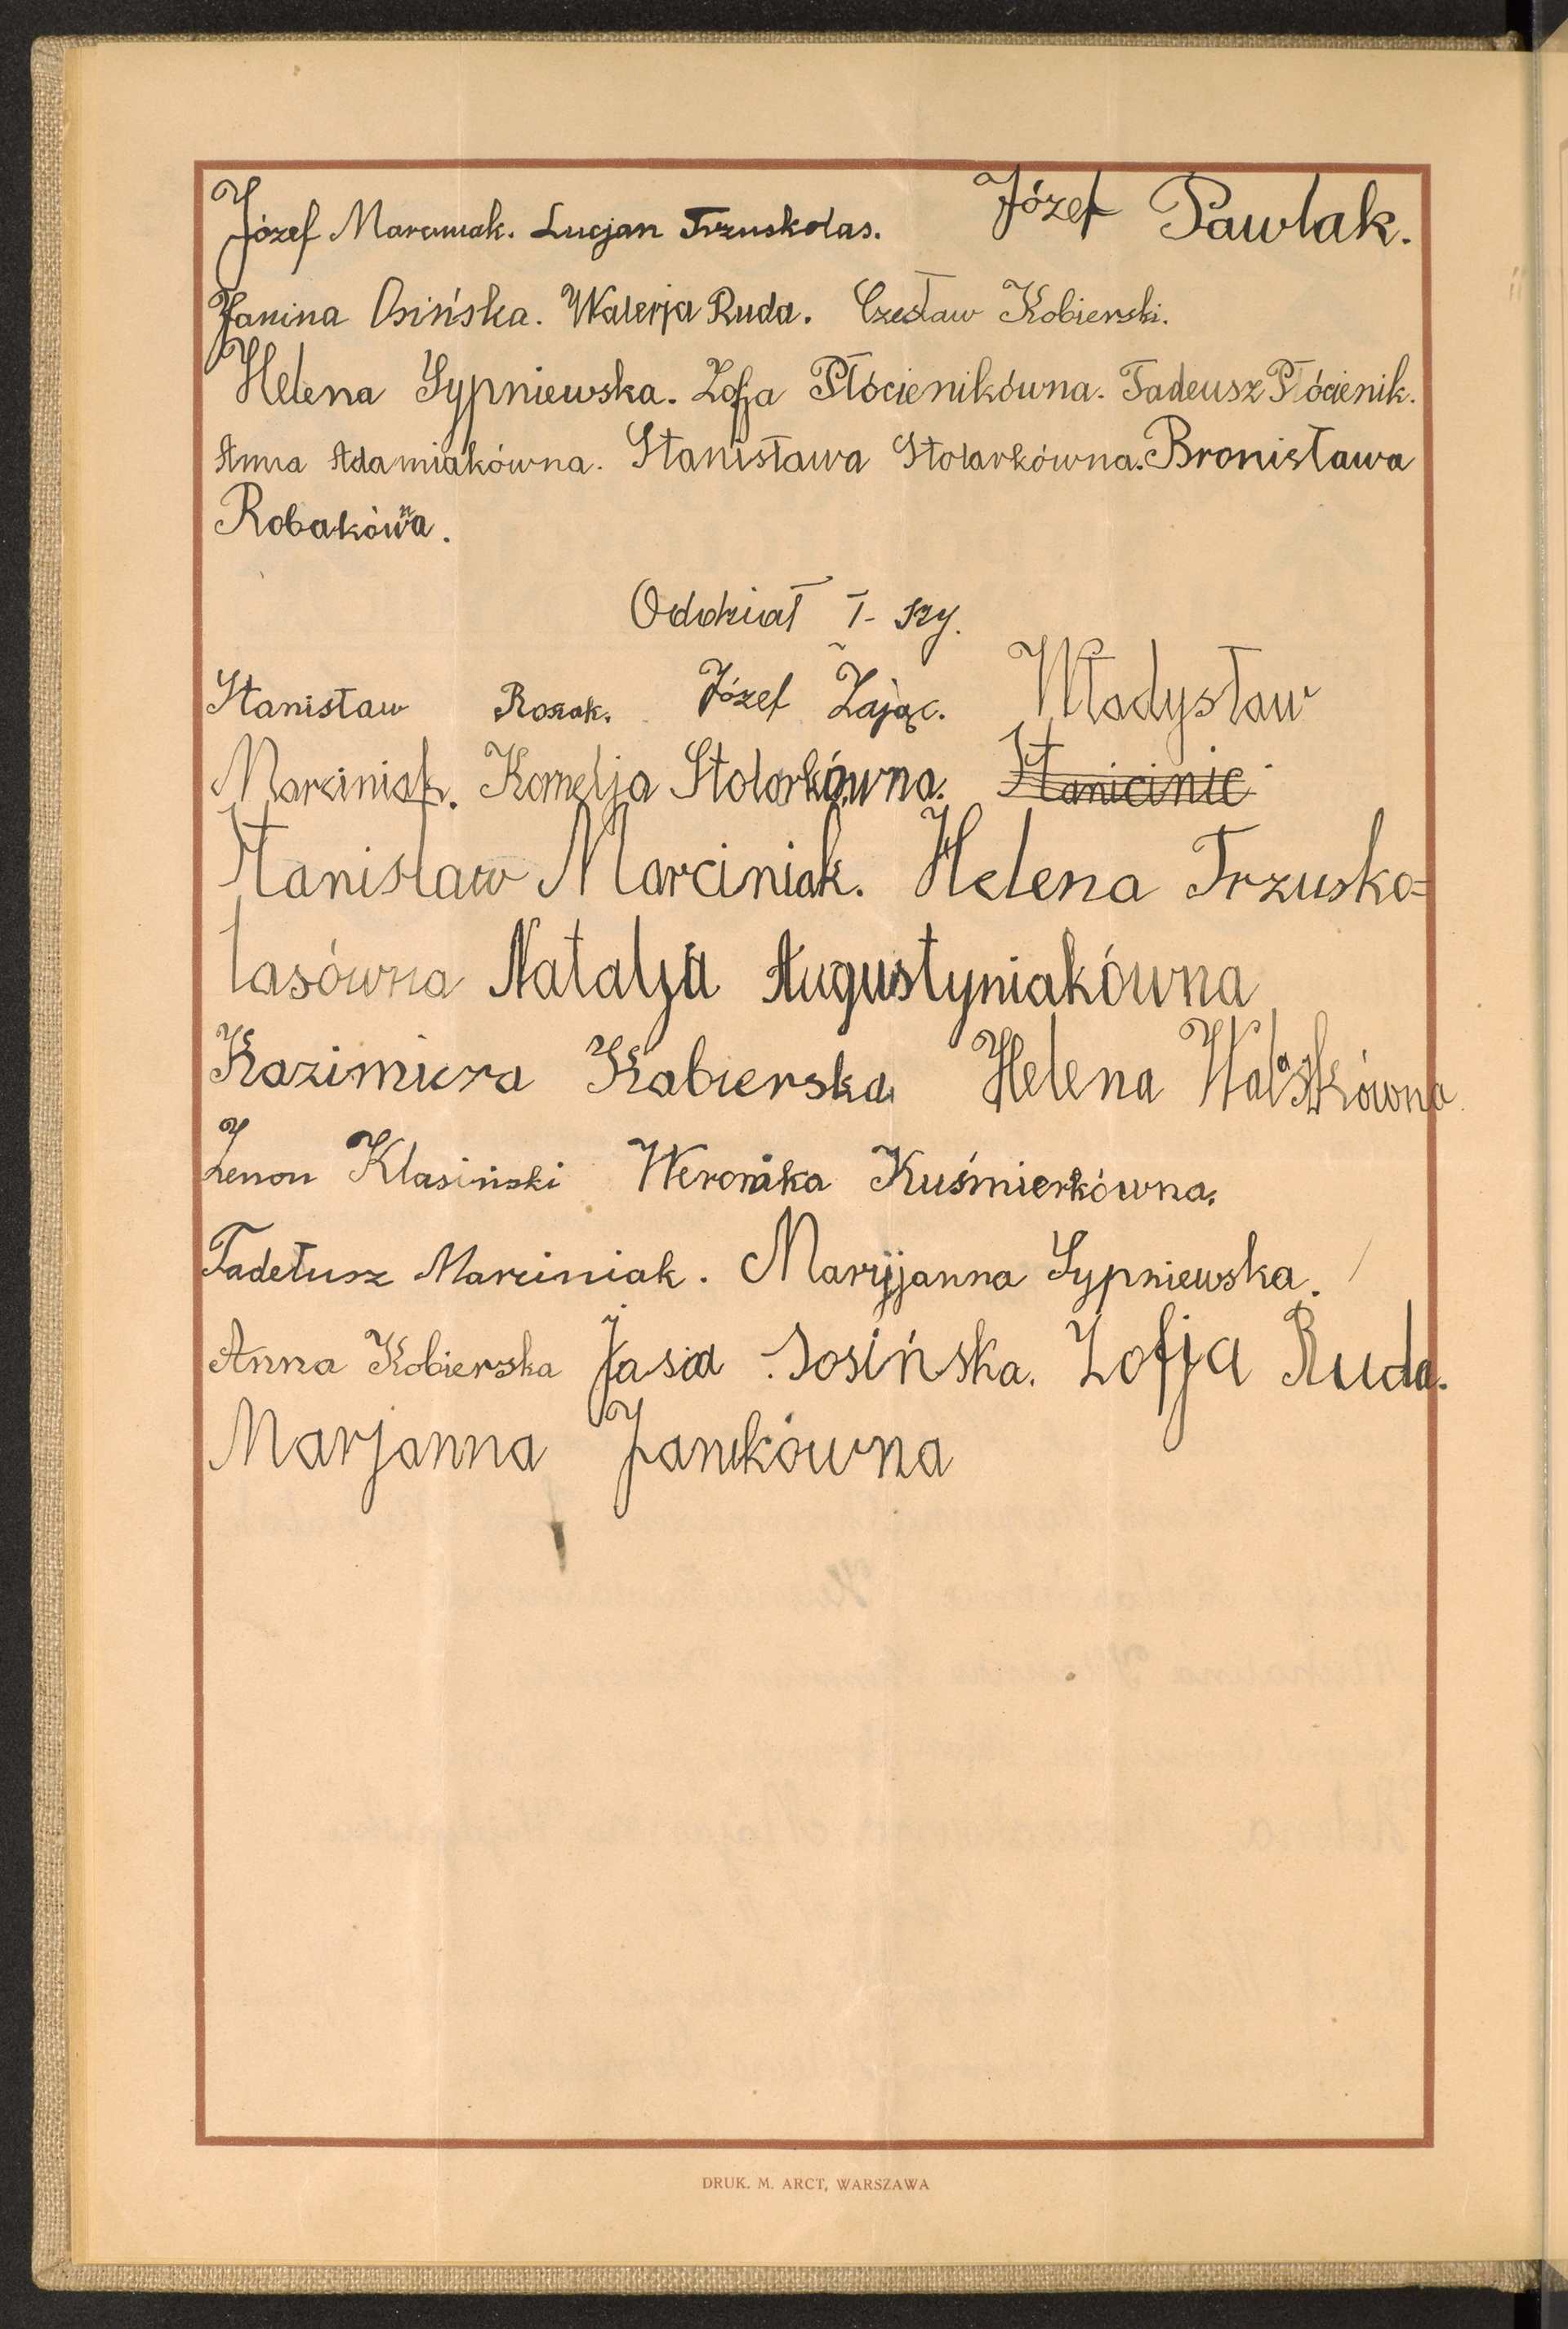 Józef Marciniak. Lucjan Trzuskolas. Józef Pawlak.
Janina Osińska. Walerja Ruda. Czesław Kobierski.
Helena Sypniewska. Zofja Płócienikówna. Tadeusz Płócienik.
Anna Adamiakówna. Stanisława Stolarkówna. Bronisława
Robakówna.
Oddział I-szy.
Stanisław Rosak. Józef Zając. Władysław
Marciniak. Kornelja Stolarkówna. Stanicinic
Stanisław Marciniak. Helena Trzusko=
lasówna Natalja Augustyniakówna
Kazimiera Kabierska Helena Walaskówna
Zenon Klasiński Weronika Kuśmierkówna.
Tadełusz Marciniak. Maryjanna Sypniewska.
Anna Kobierska Jasia Josińska. Zofja Ruda.
Marjanna Janikówna
DRUK. M. ARCT, WARSZAWA